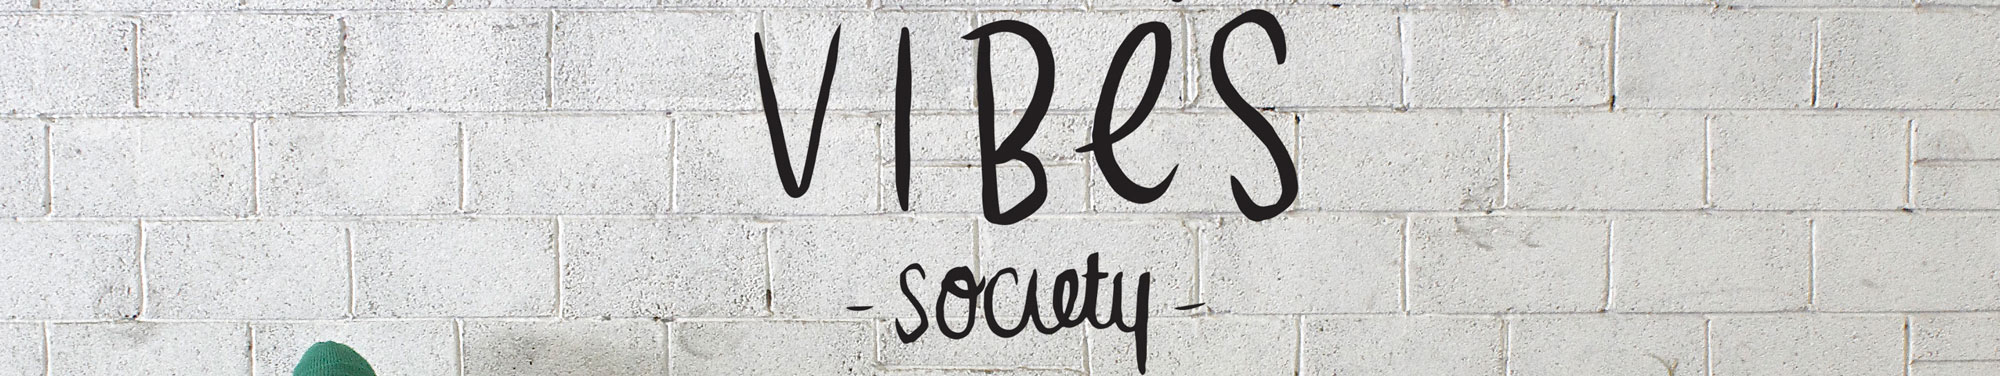 VIBeS
- society -